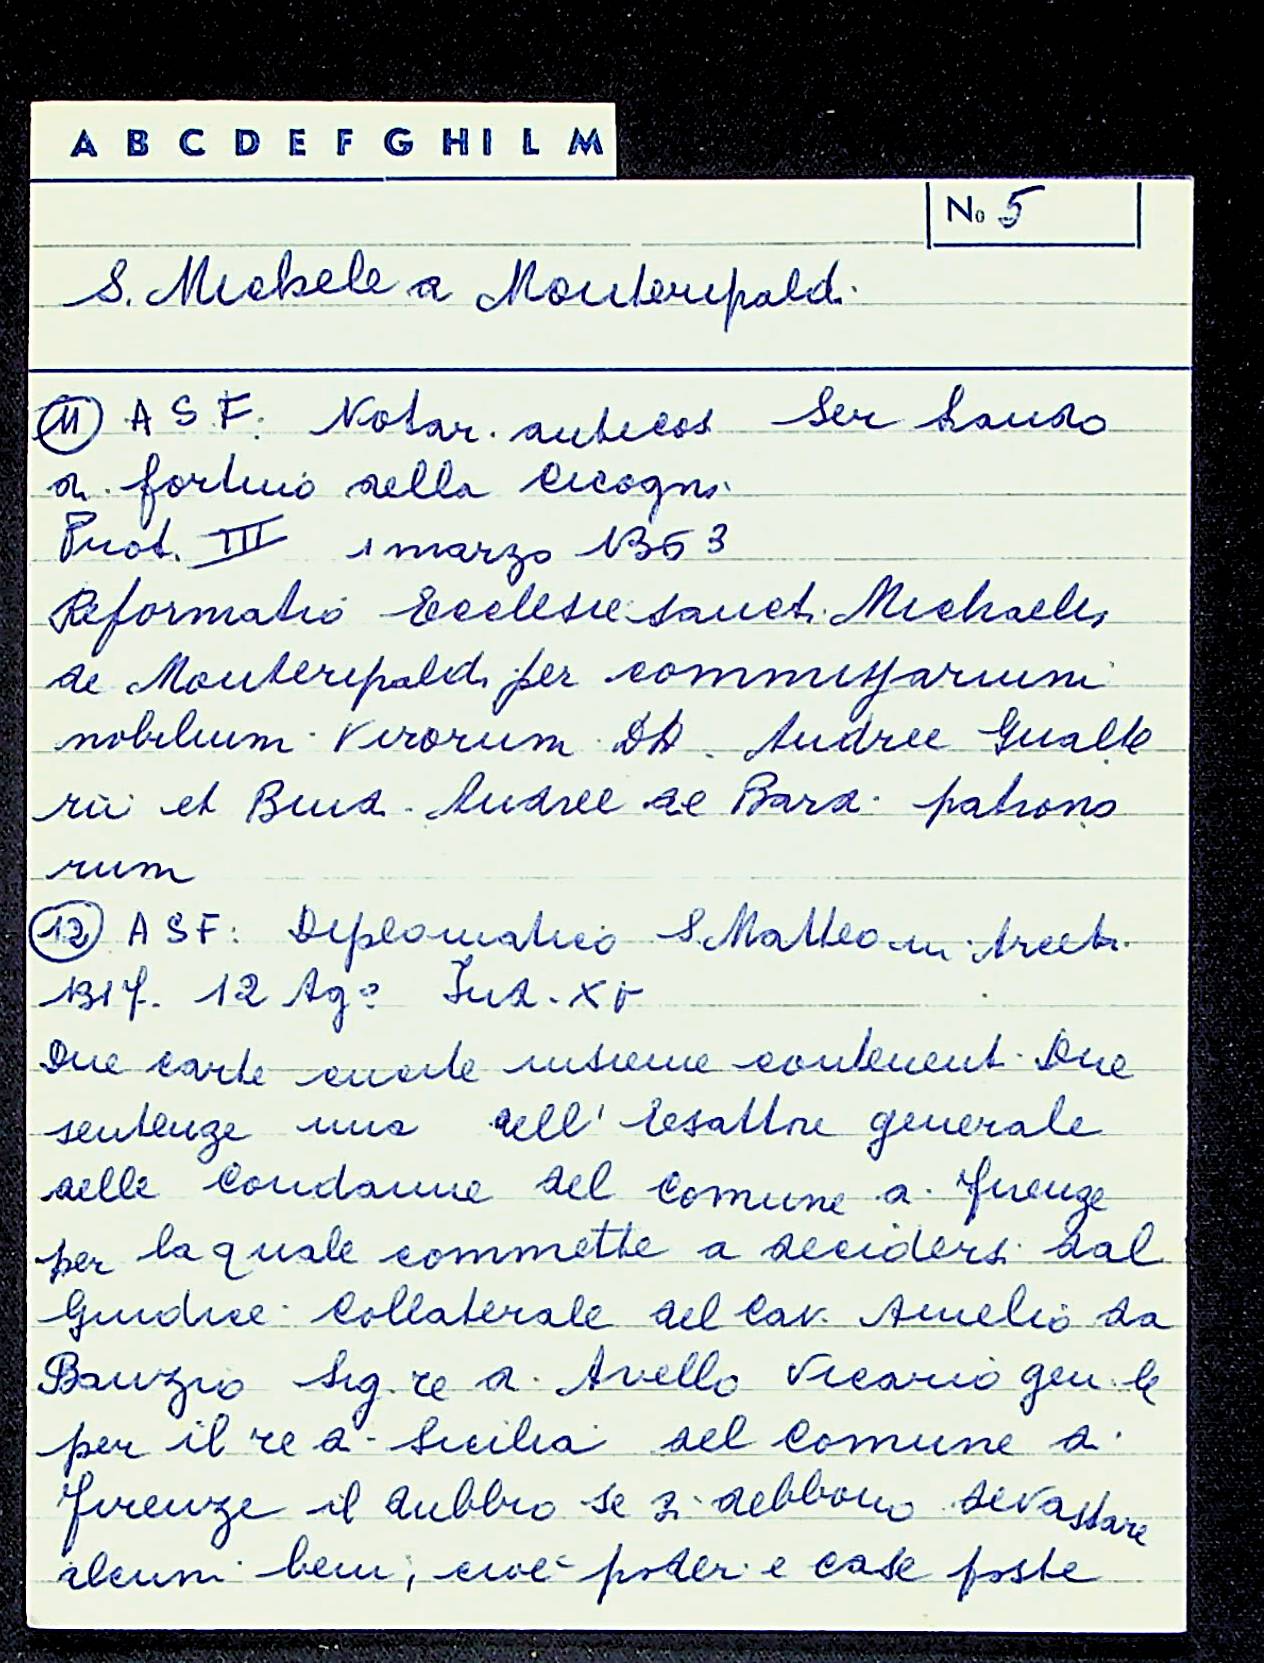 A B C D E F G H I L M
No 5
S. Michele a Monteripaldi
11 A S F. Notar. antecos Ser Lando
di fortino della Cicogna
Prot. III 1 marzo 1353
Reformatio Ecclesie sancti Michaelis
de Monteripaldi per commissarium
nobilium Virorum DD. Andree Gualte
rii et Bindi Andree de Bardi patrono
rum
12 A S F: Diplomatico S. Matteo in Arcetri
1317. 12 Ago Ind. XV
Due carte cucite insieme contenenti Due
sentenze una dell' Esattore generale
delle Condanne del Comune di firenze
per la quale commette a decidersi dal
Giudice Collaterale del Cav. Amelio da
Bauzio Sig.re di Avello Vicario gen.le
per il re di Sicilia del Comune di
firenze il dubbio se si debbono devastare
alcuni beni, cioè poderi e case poste